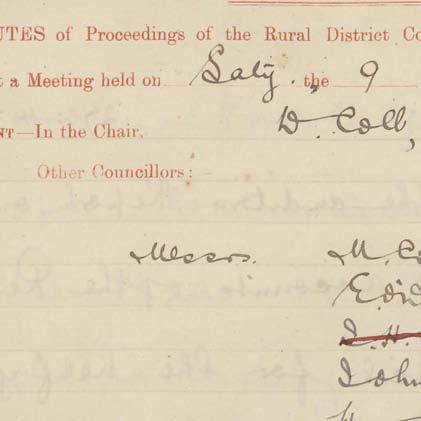 UTES of Proceedings of the Rural District Co
t a Meeting held on Saty. the 9
NT—In the Chair, D. Coll,
Other Councillors:
Messrs. M. Co
Edw
I. H.
John